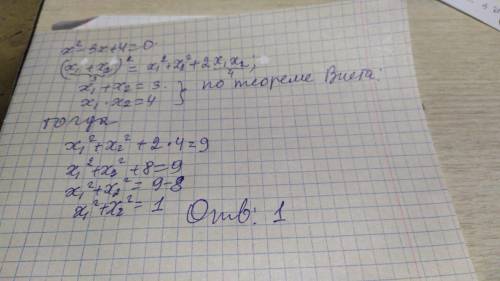 x² - 3x + 4 = 0
(x₁ + x₂)² = x₁² + x₂² + 2x₁x₂,
x₁ + x₂ = 3
x₁ · x₂ = 4 } по теореме Виета:
тогда
x₁² + x₂² + 2 · 4 = 9
x₁² + x₂² + 8 = 9
x₁² + x₂² = 9 - 8
x₁² + x₂² = 1 Отв: 1